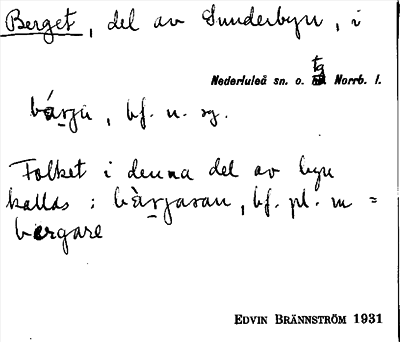 Berget, del av Sunderbyn, i
Nederluleå sn. o. tg Norrb. l.
bárjɩ, bf. n. sg.
Folket i denna del av byn
kallas: bàrjaran, bf. pl. m =
bergare
EDVIN BRÄNNSTRÖM 1931